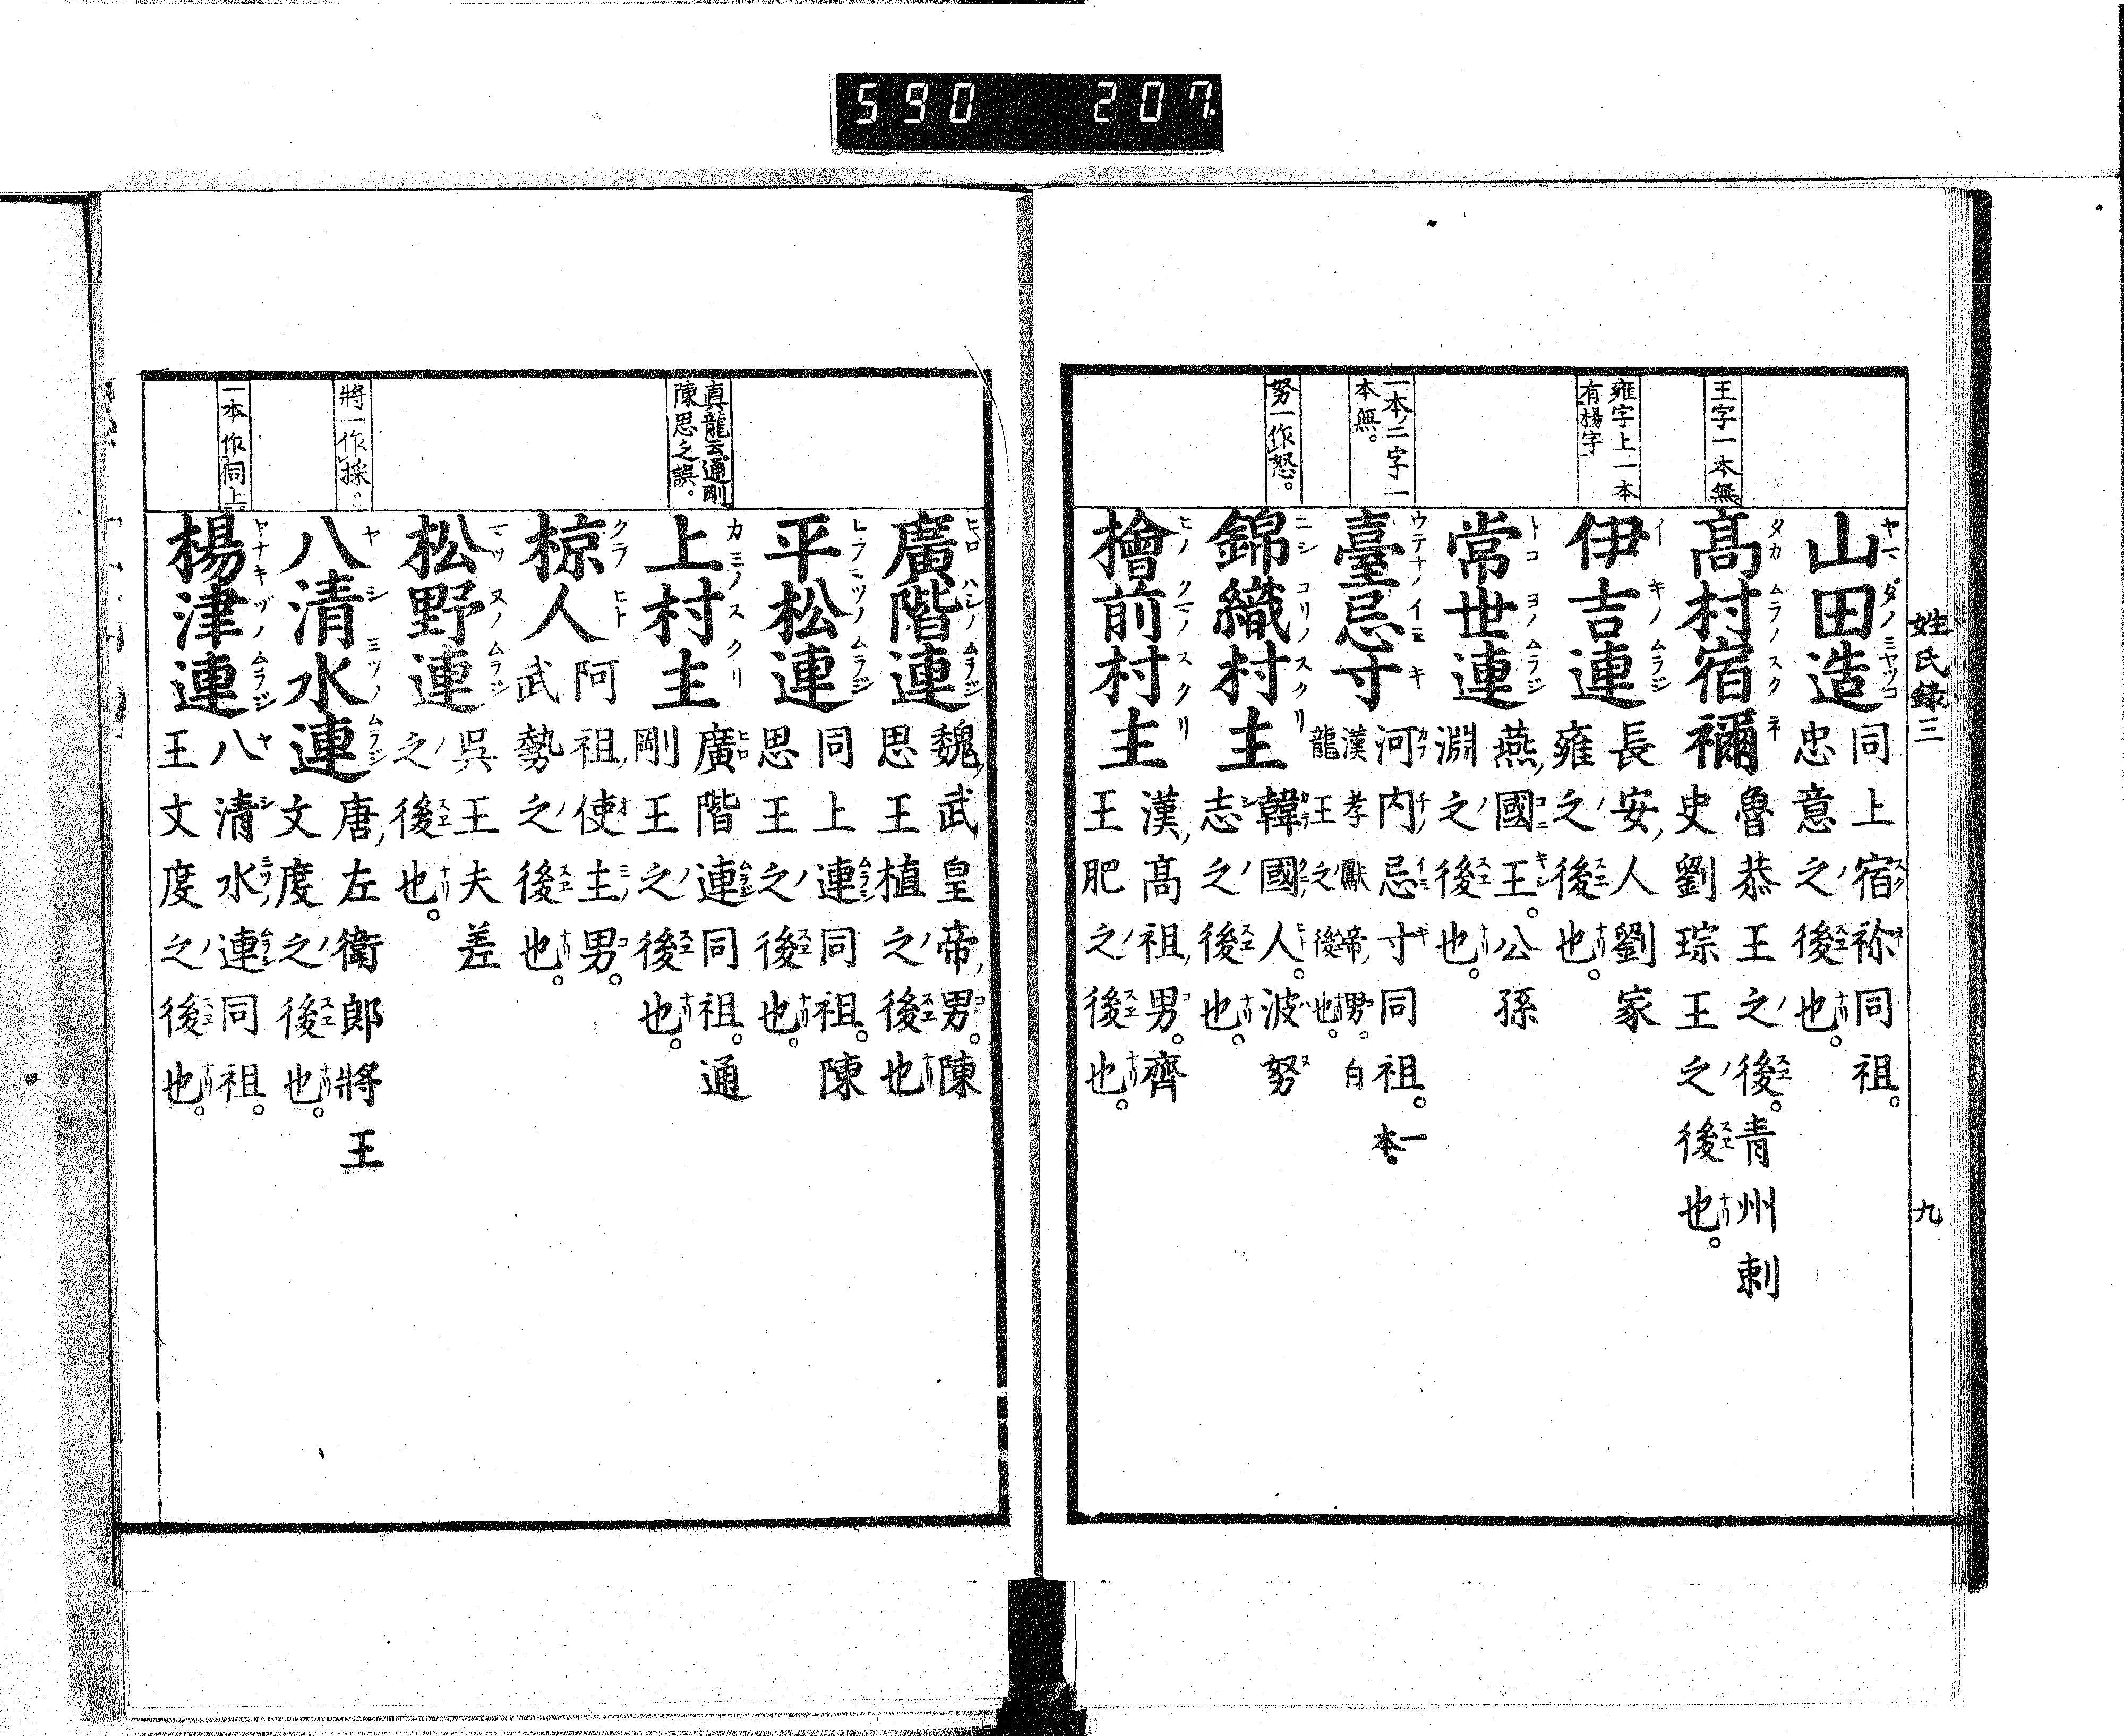 590 207
姓氏録三
九
王字一本無。
雍字上一本
有楊字
一本ノ二字一
本無。
努一作怒。
山田造
同上宿祢同祖。
忠意之後也。
髙村宿禰
魯恭王之後。青州刺
史劉琮王之後也。
伊吉連
長安人劉家
雍之後也。
常世連
燕國王。公孫
淵之後也。
臺忌寸
河内忌寸同祖。一本。
漢孝獻帝男。白
龍王之後也。
錦織村主
韓國人。波努
志之後也。
檜前村主
漢髙祖男。齊
王肥之後也。
真龍云。通剛。
陳思之誤。
將一作採。
一本作同上。
廣階連
魏武皇帝男。陳
思王植之後也
平松連
同上連同祖。陳
思王之後也。
上村主
廣階連同祖。通
剛王之後也。
椋人
阿祖使主男。
武勢之後也。
松野連
呉王夫差
之後也。
八清水連
唐左衛郎將王
文度之後也。
楊津連
八清水連同祖。
王文度之後也。